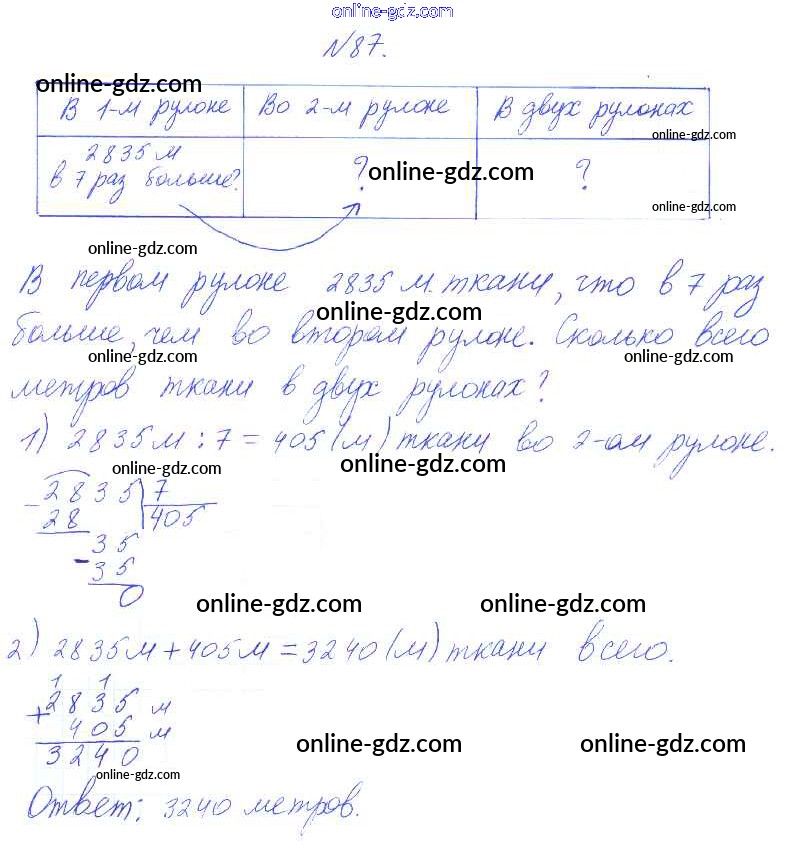 online-gdz.com
№87.
online-gdz.com
В 1-м рулоне Во 2-м рулоне В двух рулонах
online-gdz.com
2835 м
в 7 раз больше? ? online-gdz.com ?
online-gdz.com
online-gdz.com
В первом рулоне 2835 м. ткани, что в 7 раз
online-gdz.com
больше, чем во втором рулоне. Сколько всего
online-gdz.com online-gdz.com
метров ткани в двух рулонах?
1) 2835м : 7 = 405 (м) ткани во 2-ом рулоне.
online-gdz.com online-gdz.com
- 2835 7
28 405
35
- 35
0
online-gdz.com online-gdz.com
2) 2835м + 405м = 3240 (м) ткани всего.
1 1
2835 м
+ 405 м
3240
online-gdz.com online-gdz.com
online-gdz.com
Ответ: 3240 метров.